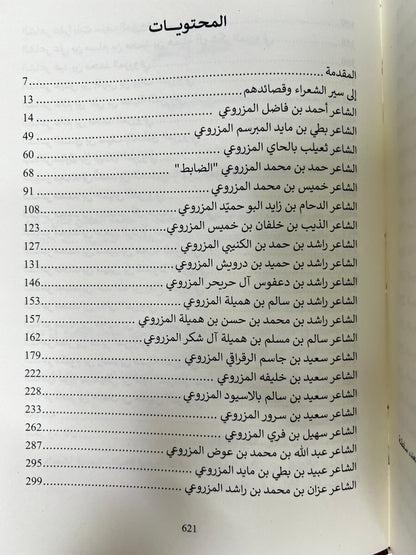 المحتويــات
المقدمة ........ 7
إلى سير الشعراء وقصائدهم ........ 13
الشاعر أحمد بن فاضل المزروعي ........ 14
الشاعر بطي بن مايد المبرسم المزروعي ........ 49
الشاعر ثعيلب بالحاي المزروعي ........ 60
الشاعر حمد بن محمد المزروعي "الضابط" ........ 68
الشاعر خميس بن محمد المزروعي ........ 91
الشاعر الدحام بن زايد البو حميّد المزروعي ........ 108
الشاعر الذيب بن خلفان بن خميس المزروعي ........ 123
الشاعر راشد بن حمد بن الكتبي المزروعي ........ 127
الشاعر راشد بن حميد بن درويش المزروعي ........ 131
الشاعر راشد بن دعفوس آل حريحر المزروعي ........ 146
الشاعر راشد بن سالم بن هميلة المزروعي ........ 153
الشاعر راشد بن محمد بن حسن بن هميلة المزروعي ........ 157
الشاعر سالم بن مسلم بن هميلة آل شكر المزروعي ........ 162
الشاعر سعيد بن جاسم الرقراقي المزروعي ........ 179
الشاعر سعيد بن خليفه المزروعي ........ 222
الشاعر سعيد بن سالم بالاسيود المزروعي ........ 228
الشاعر سعيد بن سرور المزروعي ........ 233
الشاعر سهيل بن فري المزروعي ........ 262
الشاعر عبد الله بن محمد بن عوض المزروعي ........ 287
الشاعر عبيد بن بطي بن مايد المزروعي ........ 295
الشاعر عزان بن محمد بن راشد المزروعي ........ 299
621